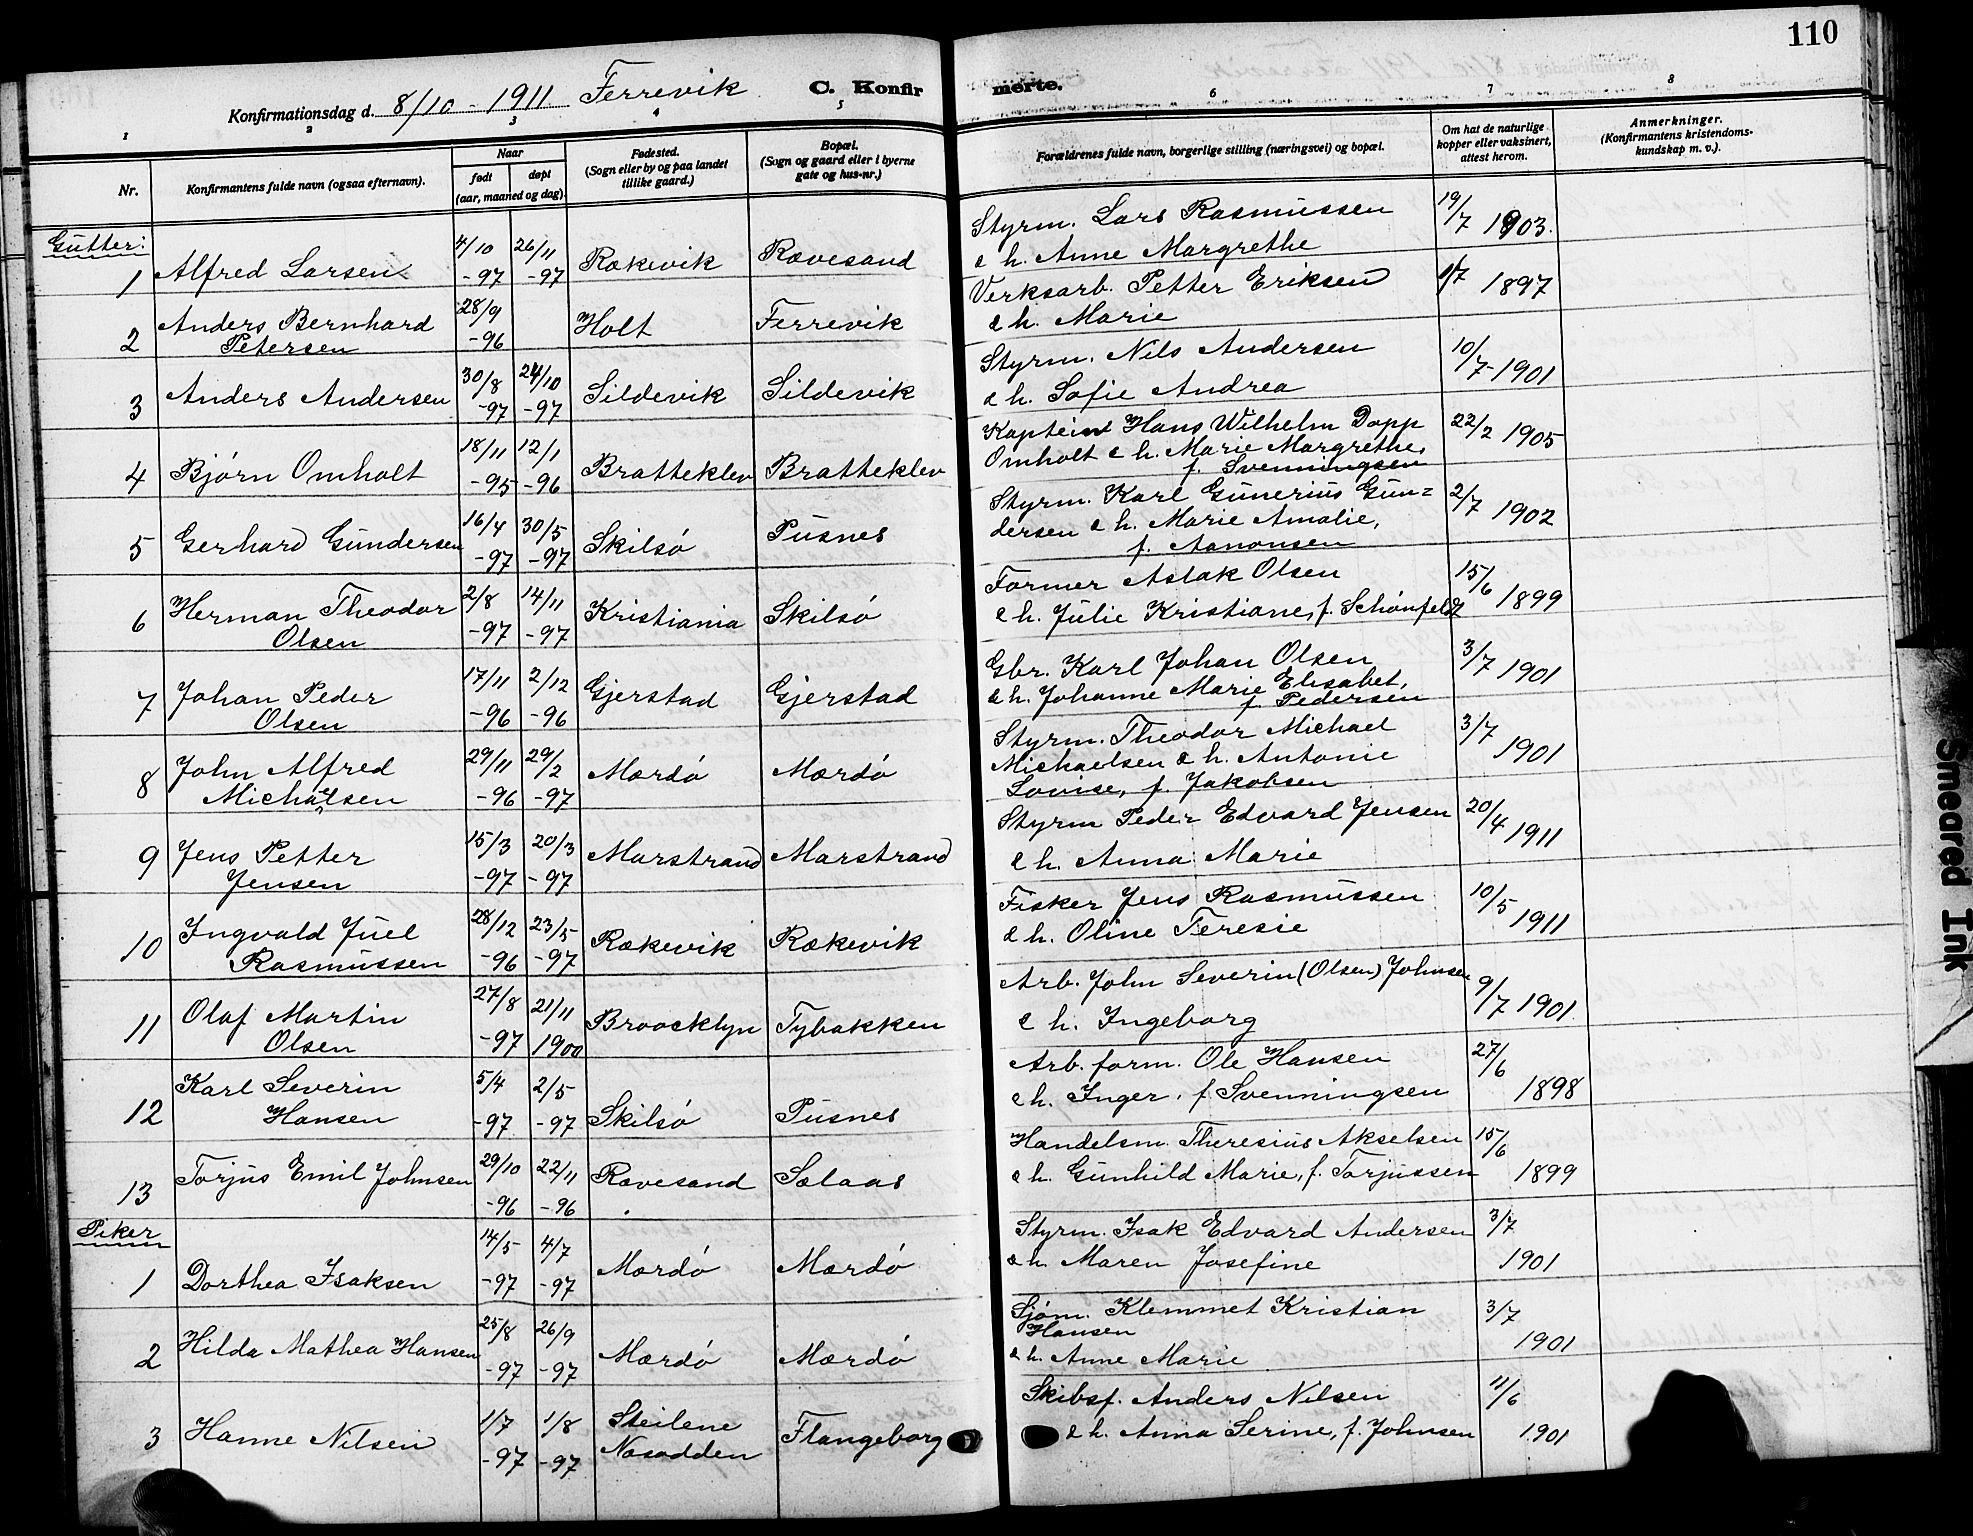 110
Konfirmationsdag d. 8/10 - 1911 Ferrevik C. Konfirmerte.
1 2 3 4 5 6 7 8
Nr. Konfirmantens fulde navn (ogsaa efternavn). Naar født døpt (aar, maaned og dag) Fødested. (Sogn eller by og paa landet tillike gaard.) Bopæl. (Sogn og gaard eller i byerne gate og hus-nr.) Forældrenes fulde navn, borgerlige stilling (næringsvei) og bopæl. Om hat de naturlige kopper eller vaksinert, attest herom. Anmerkninger. (Konfirmantens kristendomskundskap m. v.).
Gutter:
1 Alfred Larsen 4/10 -97 26/11 -97 Rækevik Rævesand Styrm. Lars Rasmussen & h. Anne Margrethe 19/7 1903.
2 Anders Bernhard Petersen 28/9 -96 Holt Ferrevik Verksarb. Petter Eriksen & h. Marie 1/7 1897
3 Anders Andersen 30/8 -97 24/10 -97 Sildevik Sildevik Styrm. Nils Andersen & h. Sofie Andrea 10/7 - 1901
4 Bjørn Omholt 18/11 -95 12/1 -96 Bratteklev Bratteklev Kaptein Hans Wilhelm Dopp Omholt & h. Marie Margrethe, f. Svenningsen 22/2 1905
5 Gerhard Gundersen 16/4 -97 30/5 -97 Skilsø Pusnes Styrm. Karl Gunerius Gundersen & h. Marie Amalie, f. Aanonsen 2/7 1902
6 Herman Theodor Olsen 2/8 -97 14/11 -97 Kristiania Skilsø Former Aslak Olsen & h. Julie Kristiane, f. Schønfeldt 15/6 1899
7 Johan Peder Olsen 17/11 -96 2/12 -96 Gjerstad Gjerstad Gbr. Karl Johan Olsen & h. Johanne Marie Elisabet, f. Pedersen 3/7 1901
8 John Alfred Michaelsen 29/11 -96 29/2 -97 Mærdø Mærdø Styrm. Theodor Michael Michaelsen & h. Antonie Lovise, f. Jakobsen 3/7 1901
9 Jens Petter Jensen 15/3 -97 20/3 -97 Marstrand Marstrand Styrm Peder Edvard Jensen & h. Anna Marie 20/4 1911
10 Ingvald Juel Rasmussen 28/12 -96 23/5 -97 Rækevik Rækevik Fisker Jens Rasmussen & h. Oline Teresie 10/5 1911
11 Olaf Martin Olsen 27/8 -97 21/11 1900 Broocklyn Tybakken Arb. John Severin (Olsen) Johnsen & h. Ingeborg 9/7 1901.
12 Karl Severin Hansen 5/4 -97 2/5 -97 Skilsø Pusnes Arb. form. Ole Hansen & h. Inger, f. Svenningsen 27/6 1898
13 Torjus Emil Johnsen 29/10 -96 22/11 -96 Rævesand Sælaas Handelsm. Theresius Akselsen & h. Gunhild Marie, f. Torjussen 15/6 1899
Piker
1 Dorthea Isaksen 14/5 -97 4/7 -97 Mærdø Mærdø Styrm. Isak Edvard Andersen & h. Maren Josefine 3/7 1901
2 Hilda Mathea Hansen 25/8 -97 26/9 -97 Mærdø Mærdø Sjøm. Klemmet Kristian Hansen & h. Anne Marie 3/7 1901
3 Hanne Nilsen 1/7 -97 1/8 -97 Steilene Næsodden Flangeborg Skibsf. Anders Nilsen & h. Anna Serine, f. Johnsen 11/6 1901
Smeared Ink